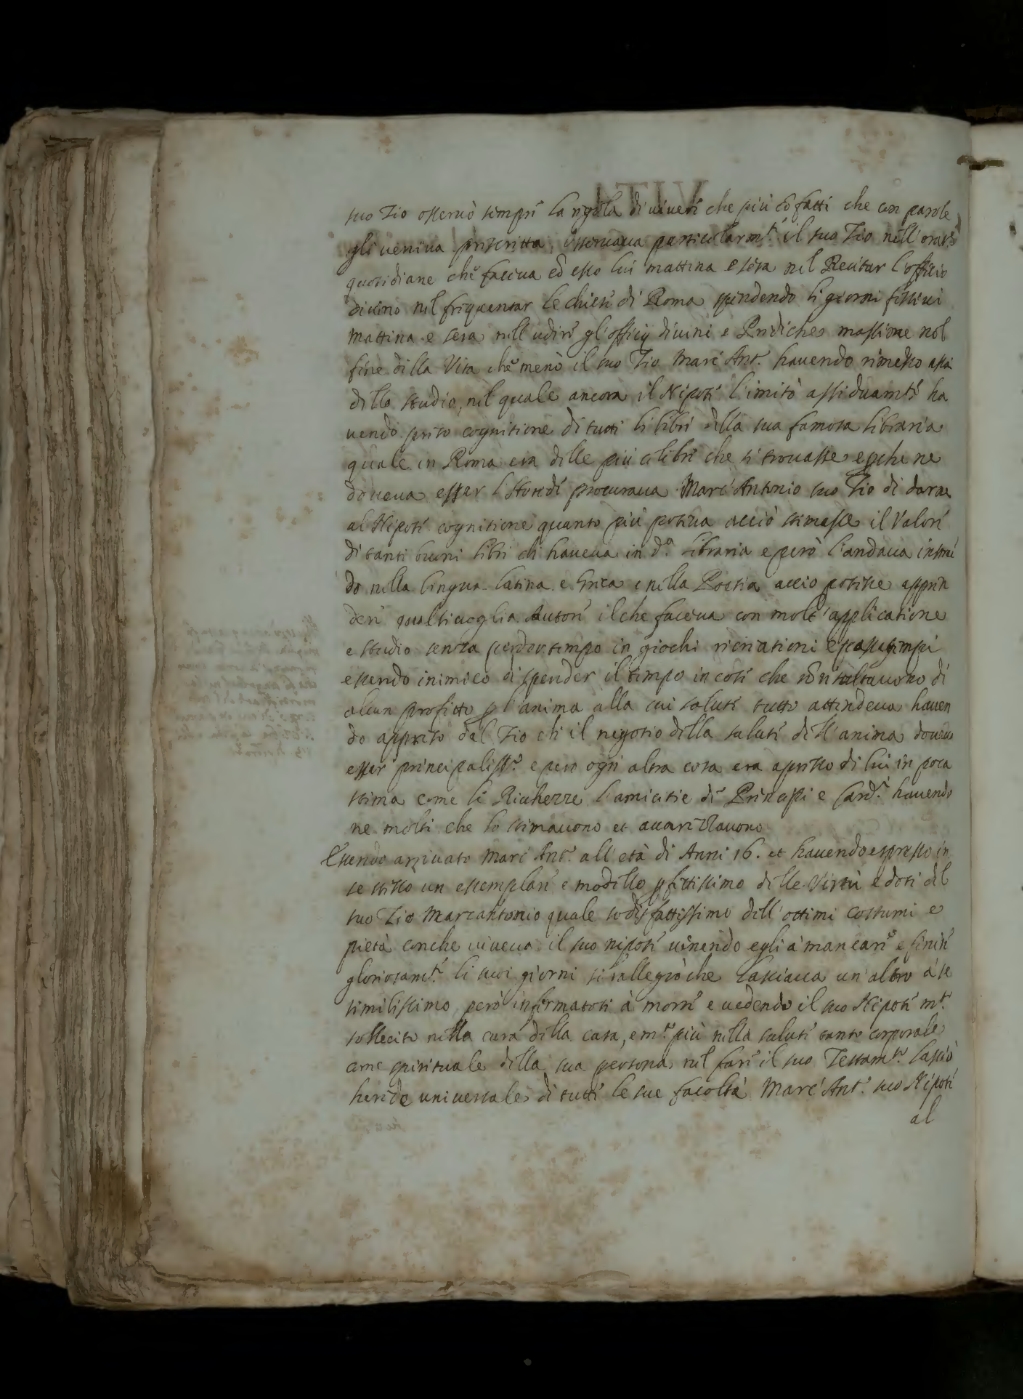 suo Zio osservò sempre la regola di vivere che più co fatti che con parole
gli veniva prescritta, osservava particolarm.te il suo Zio nell'orat.ni
quotidiane che faceva ed esso lui mattina e sera nel Recitar l'officio
divino nel frequentar le chiese di Roma spendendo li giorni festivi
mattina e sera nell'udire gl'officij divini e Prediche massime nel
fine della Vita che menò il suo Zio Marc'Ant.o havendo rimesso
dello studio, nel quale ancora il Nipote l'imitò assiduam.te ha
vendo preso cognitione di tutti li libri della sua famosa libraria
quale in Roma era delle più celibri che si trovasse e perche ne
doveva esser l'Herede procurava Marc'Antonio suo Zio di darne
al Nipote cognitione quanto più poteva acciò stimasse il Valore
di tanti buoni libri ch'haveva in d.a libraria e però l'andava instruē
do nella lingua latina e Greca e nella Poesia acciò potesse appren
dere qualsivoglia Autore il che faceva con molt'applicatione
e studio senza perder tempo in giochi ricreationi e passatempi
essendo inimico di spender il tempo in cose che non
alcun profitto p l'anima alla cui salute tutto attendeva haven
do appreso dal Zio ch'il negotio della salute dell'anima doveva
esser principaliss.o e però ogni altra cosa era apresso di lui in poca
stima come le Richezze l'amicitie di Principi e Card.li havendo
ne molti che lo stimavono et accarezzavono
Essendo arrivato Marc'Ant.o all'età di Anni 16. et havendo espresso in
se stesso un essemplare e modello pfettissimo delle Virtù e doti del
suo Zio Marcantonio quale sodisfattissimo dell'ottimi costumi e
pietà conche viveva il suo nipote venendo egli à mancare e finire
gloriosam.te li suoi giorni si rallegrò che lasciava un'altro à se
similissimo però infermatosi à morte e vedendo il suo Nipote m.to
sollecito nella cura della casa, e m.to più nella salute tanto corporale
come spirituale della sua persona nel fare il suo Testam.to lasciò
herede universale di tutte le sue facoltà Marc'Ant.o suo Nipote
al